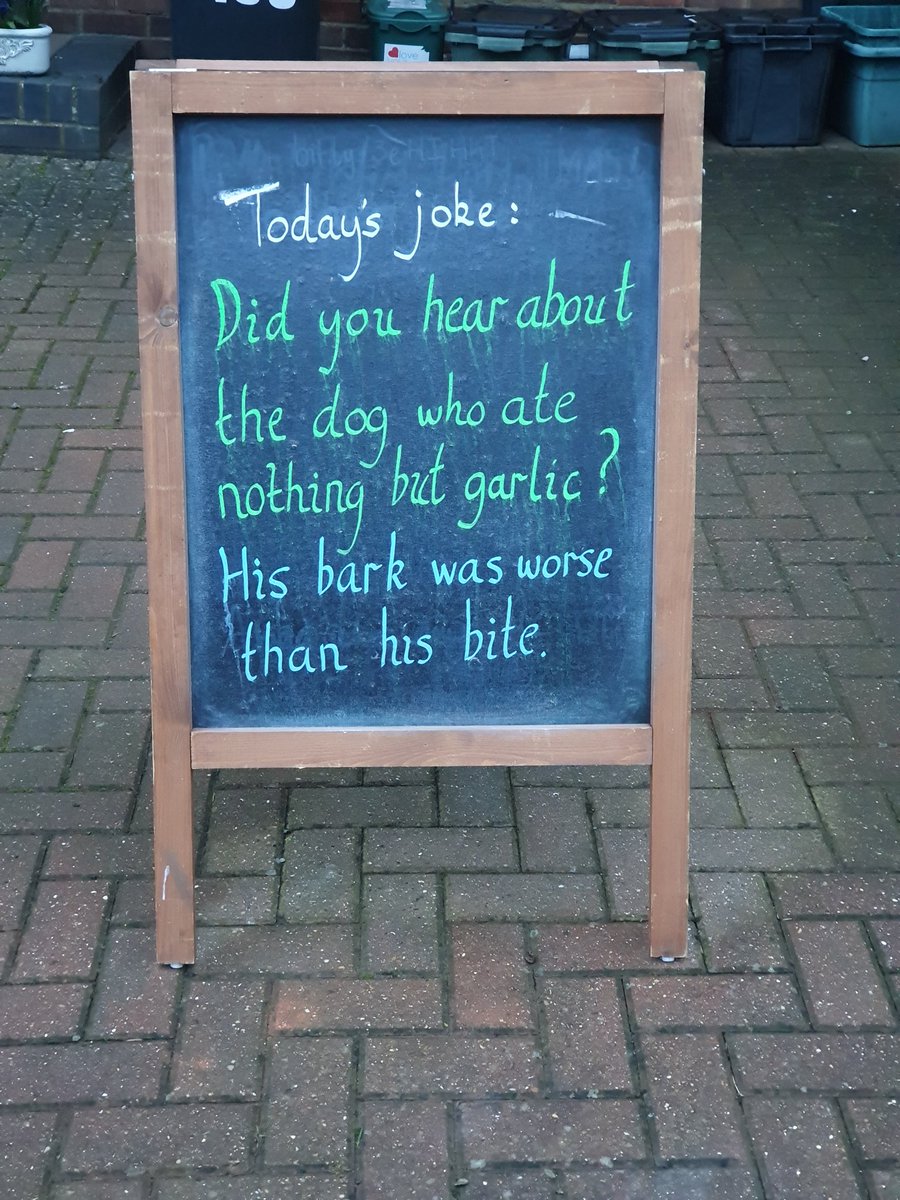 love
Today's joke:
Did you hear about
the dog who ate
nothing but garlic?
His bark was worse
than his bite.